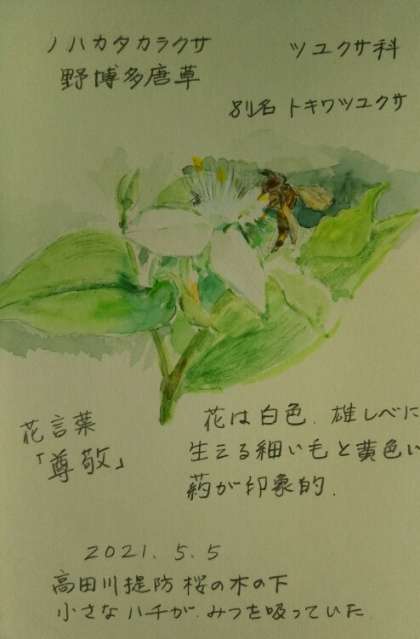 ノハカタカラクサ ツユクサ科
野博多唐草
別名 トキワツユクサ
花言葉
「尊敬」
花は白色、雄しべに
生える細い毛と黄色い
葯が印象的.
2021.5.5
高田川堤防 桜の木の下
小さなハチが、みつを吸っていた